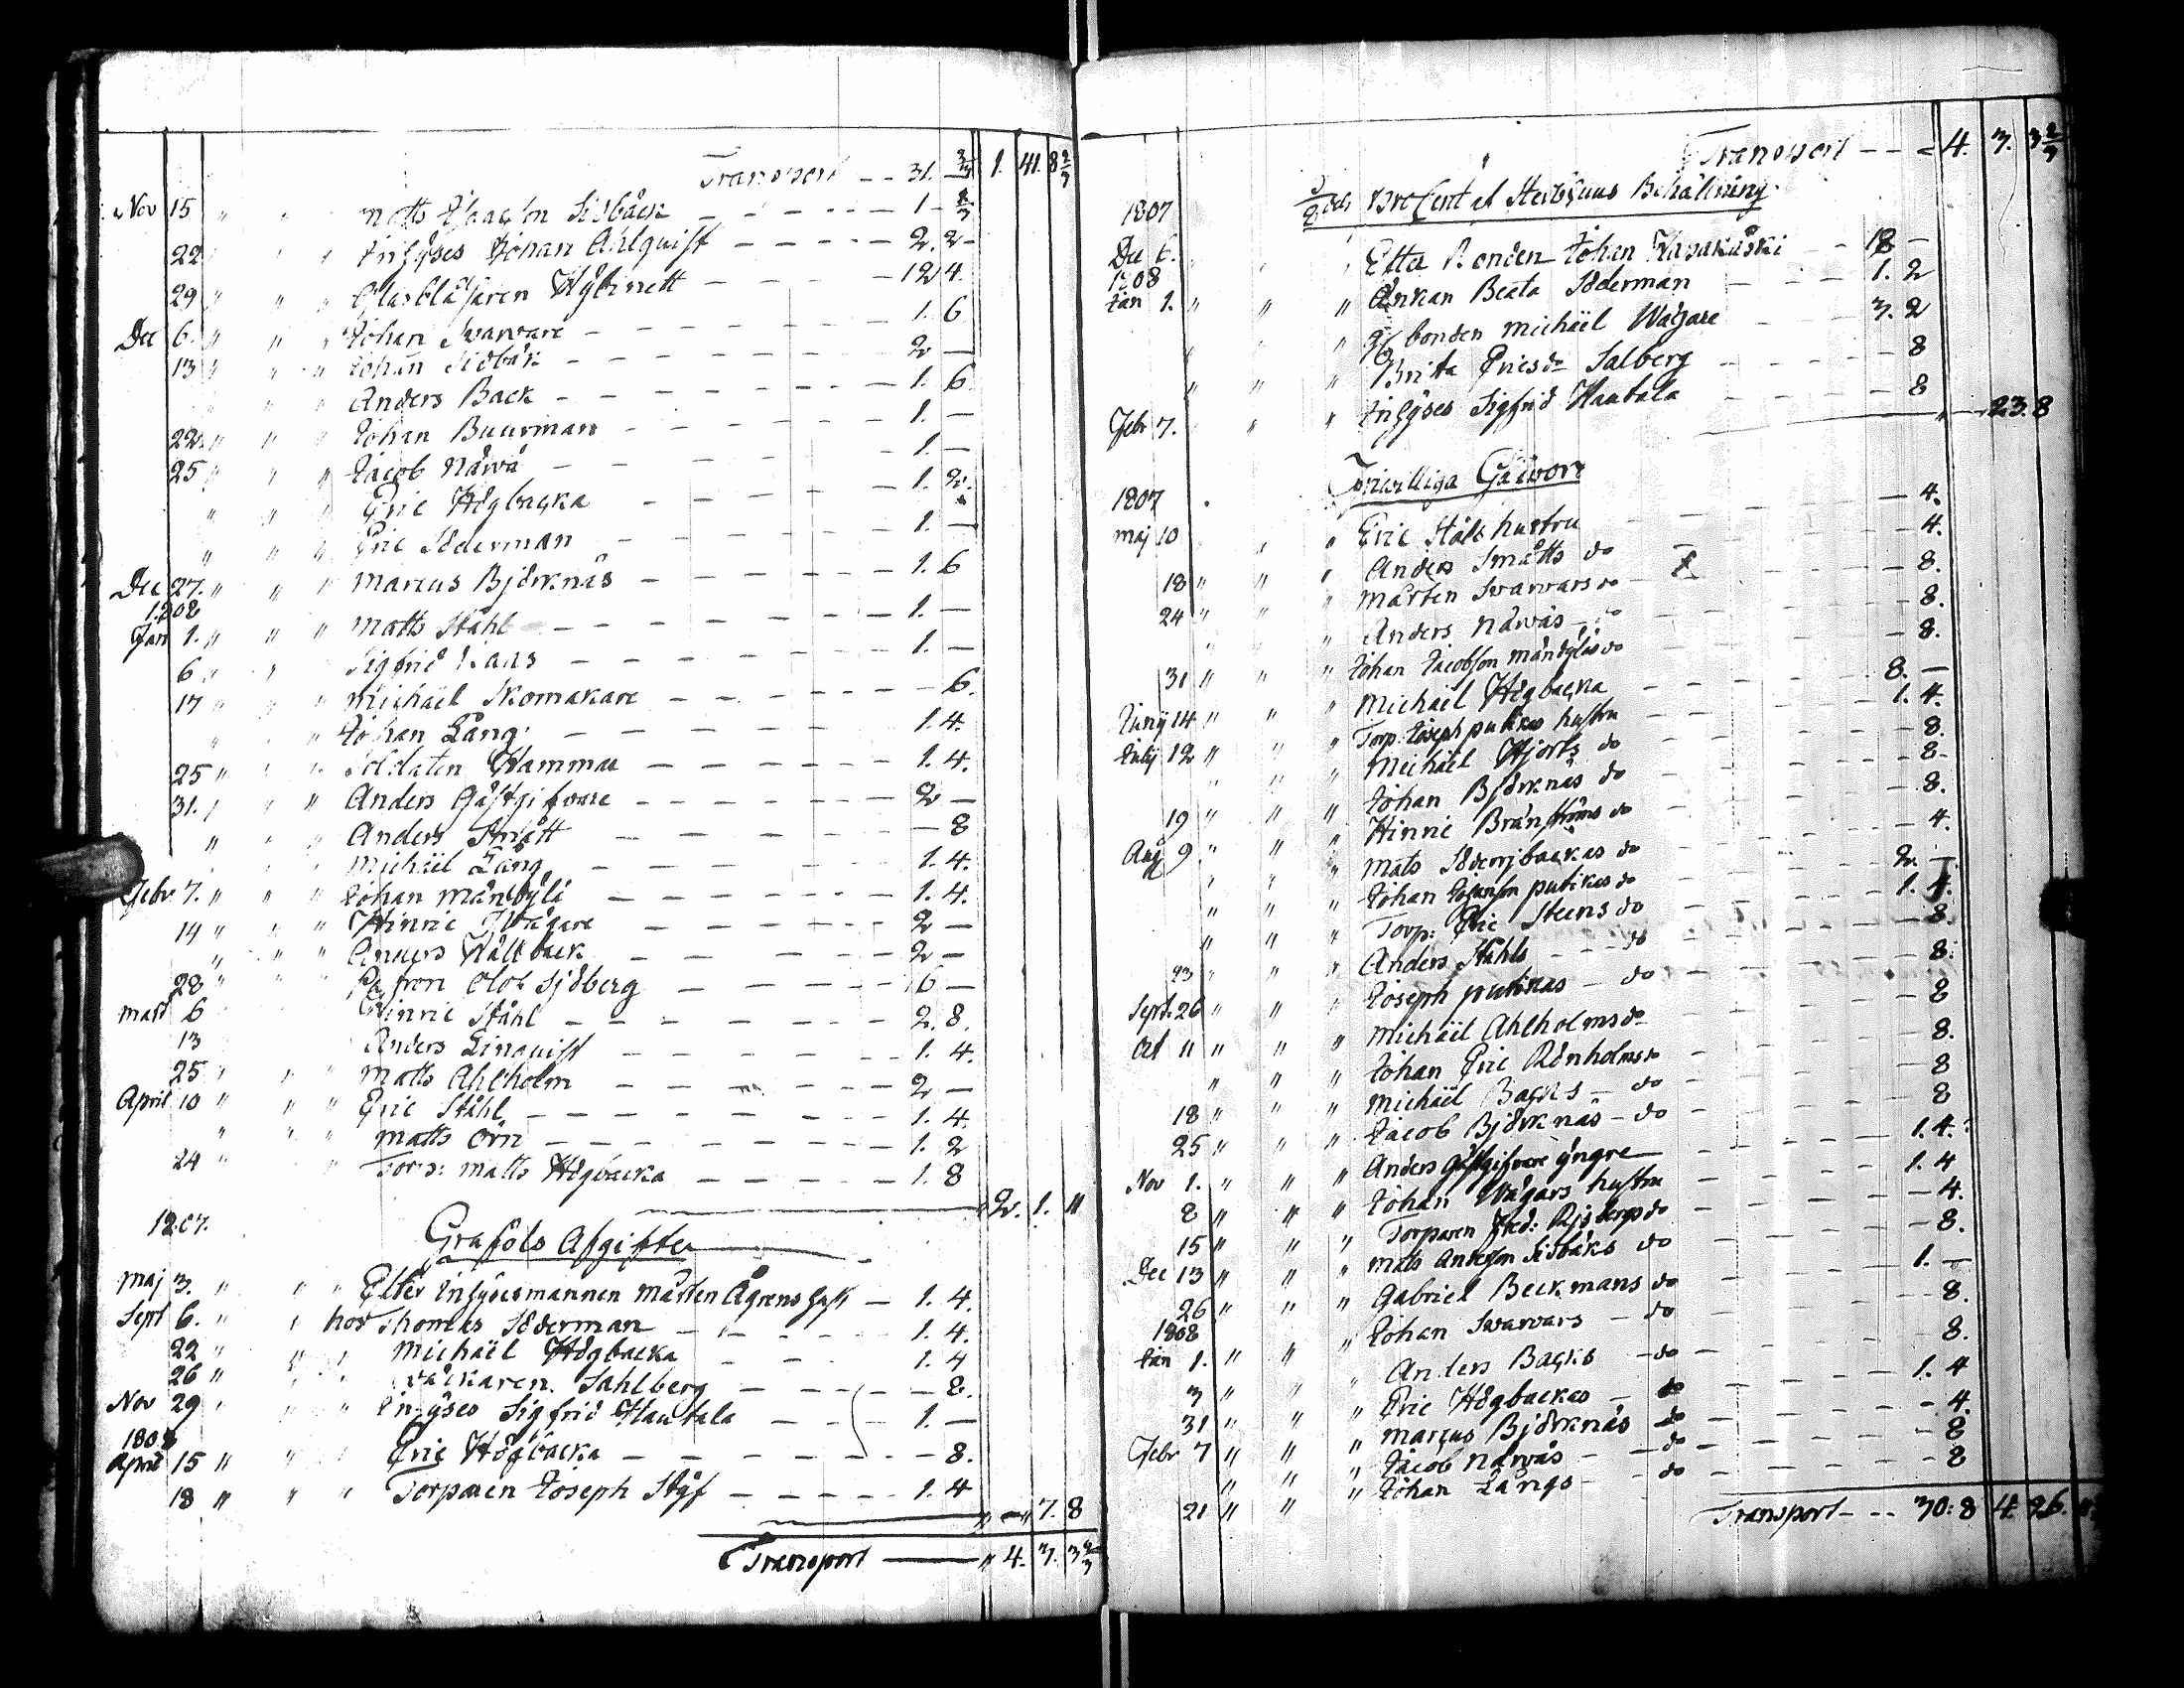 Transport — — 31. 2/3 1. 41. 8 2/3
Nov 15 " " Matts Isaacson Sidbäck — — — 1 — 8/3
22 " " Inhyses Johan Ahlquist — — — 2. 2 —
29 " " " Glasblåsaren Hybinett — — — 12 4.
Dec 6. " " " Johan Swarvare — — — 1. 6
13 " " " Johan Sidbäk — — — 2 —
" " " Anders Back — — — 1. 6
22. " " " Johan Buurman — — — 1. —
25 " " " Jacob Närvä — — — 1. —
" " " Eric Högbacka — — — 1. 2.
" " " Eric Söderman — — — 1. —
Dec 27. " " " Marcus Björknäs — — — 1. 6
1808
Jan 1. " " " Matts Ståhl — — — 1. —
6 " " Sigfrid — — — 1. —
17 " " " Michaël Skomakare — — — 6.
" " " Johan Lång — — — 1. 4.
25 " " " Soldaten Hammar — — — 1. 4.
31. " " " Anders Gästgifvare — — — 2 —
" " " Anders Smått — — — 8
" " Michaël Lång — — — 1. 4.
Febr 7. " " " Johan Mändylä — — — 1. 4.
14 " " " Hinric Wägare — — — 2 —
" " " Anders Källback — — — 2 —
28 " " " Patron Olof Sjöberg — — — 6 —
Mars 6 Hinric Ståhl — — — 2. 8.
13 Anders Linquist — — — 1. 4.
25 " " " Matts Ahlholm — — — 2 —
April 10 " " " Eric Ståhl — — — 1. 4.
" " " Matts Örn — — — 1. 2
24 " " Torp: Matts Högbacka — — — 1. 8
2. 1. "
1807. Graföls Afgifter
Maj 3. " " " Efter Inhysesmannen Mårten Ågrens — 1. 4.
Sept 6. " " hos Thomas Söderman — — — 1. 4.
22 " " " Michaël Högbacka — — — 1. 4
26 " " " Sahlberg — — — 8.
Nov 29 " " " Inhyses Sigfrid Hautala — — — 1. —
1808
April 15 " " " Eric Högbacka — — — 8.
18 " " " Torparen Joseph Styf — — — 1. 4
" — " 7. 8
Transport — " 4. 7. 3 2/3
Transport — — 4. 7. 3 2/3
1807 Pro Cent af Sterbhuus Behållning
Dec 6. " " Efter Bonden Johan — — 18 —
1808
Jan 1. " " " Änkan Beata Söderman — — — 1. 2
" " " bonden Michaël Wägare — — — 3. 2
" " " Brita Ericsdr Salberg — — — 8
Febr 7. " " Inhyses Sigfrid Hautala — — — 8
" — 23. 8
1807 Friwilliga Gåwor
Maj 10 " " Eric Ståls hustru — 4.
18 " " " Anders Smätts do — 4.
24 " " " Mårten Swarvars do — — — 8.
" " Anders Närväs do — 8.
31 " " " Johan Jacobson Mändyläs do — 8.
Juny 14 " " " Michaël Högbacka — — — 8. —
July 12 " " " Torp. Joseph putikas hustru — — — 1. 4.
" " " Michaël Hjorts do — — — 8.
" " " Johan Björknäs do — — — 8.
19 " " " Hinric Bränströms do — — — 8.
Aug 9. " " " Mats Söderbackas do — — — 4.
" " " Johan putikas do — — — 2. —
" " " Torp: Eric Steens do — — — 1. 4.
23 " " " Anders Ståhls — — do — — — 8.
Sept. 26 " " " Joseph putikas — do — — — 8.
Oct 11 " " " Michaël Ahlholms do — — — 8
" " " Johan Eric Rönholms do — — — 8.
18 " " " Michaël Backs — do — — — 8
25 " " " Jacob Björknäs — do — — — 8
Nov 1. " " " Anders Gästgifvare yngre — — — 1. 4.
8 " " " Johan Wägars hustru — — — 1. 4
15 " " " Torparen Fred: do — — — 4.
Dec 13 " " " Mats Anderson Sidbäks do — — — 8.
26 " " " Gabriel Beckmans do — — — 1. —
1808
Jan 1. " " " Johan Swarvars — do — — — 8.
3 " " " Anders Backs — do — — — 8.
31 " " " Eric Högbackas — do — — — 1. 4
Febr 7 " " " Marcus Björknäs do — — — 4.
" " " Jacob Närväs — do — — — 8
21 " " " Johan Långs — do — — — 8
Transport — — 30: 8 4. 26.